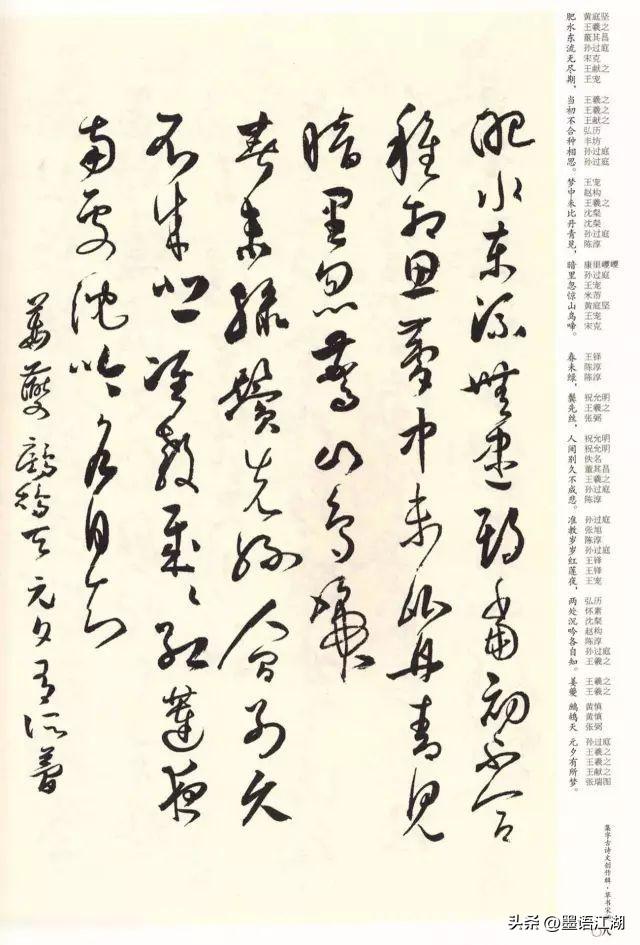 黄庭坚
王羲之
董其昌
孙过庭
宋克
王献之
王宠
王羲之
王羲之
王献之
弘历
丰坊
孙过庭
孙过庭
王宠
赵构
王羲之
沈粲
沈粲
孙过庭
陈淳
康里巎巎
孙过庭
王宠
米芾
黄庭坚
王宠
宋克
王铎
陈淳
陈淳
祝允明
王羲之
张弼
祝允明
祝允明
佚名
董其昌
王羲之
孙过庭
陈淳
孙过庭
张旭
陈淳
孙过庭
王铎
王铎
王宠
弘历
怀素
沈粲
赵构
陈淳
孙过庭
王羲之
王羲之
王羲之
黄慎
黄慎
张弼
孙过庭
王羲之
王羲之
王献之
张瑞图
肥水东流无尽期，当初不合种相思。梦中未比丹青见，暗里忽惊山鸟啼。春未绿，鬓先丝，人间别久不成悲。准教岁岁红莲夜，两处沉吟各自知。姜夔 鹧鸪天 元夕有所梦。
集字古诗文创作辑·草书宋
肥水東流無盡期當初不合
種相思夢中未比丹青見
暗里忽驚山鳥啼
春未綠鬢先絲人間別久
不成悲准教歲歲紅蓮夜
兩處沈吟各自知
姜夔鷓鴣天元夕有所夢
头条 @墨语江湖